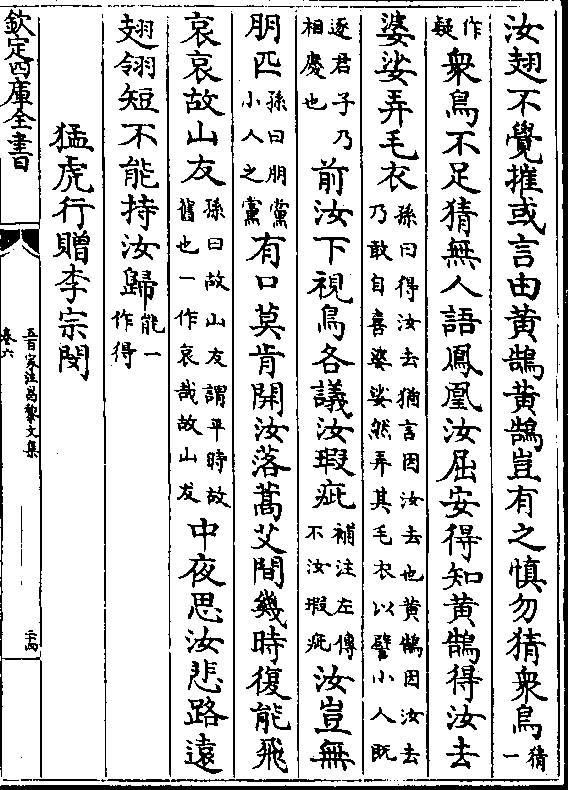 汝翅不覺摧或言由黄鵠黄鵠豈有之慎勿猜衆鳥猜一
作疑衆鳥不足猜無人語鳳凰汝屈安得知黄鵠得汝去
婆娑弄毛衣孫曰得汝去猶言因汝去也黄鵠因汝去乃敢自喜婆娑然弄其毛衣以譬小人既
逐君子乃相慶也前汝下視鳥各議汝瑕疵補注左傳不汝瑕疵汝豈無
朋匹孫曰朋黨小人之黨有口莫肯開汝落蒿艾間幾時復能飛
哀哀故山友孫曰故山友謂平時故舊也一作哀哉故山友中夜思汝悲路遠
翅翎短不能持汝歸能一作得
猛虎行贈李宗閔
欽定四庫全書
五百家注昌黎文集
卷六